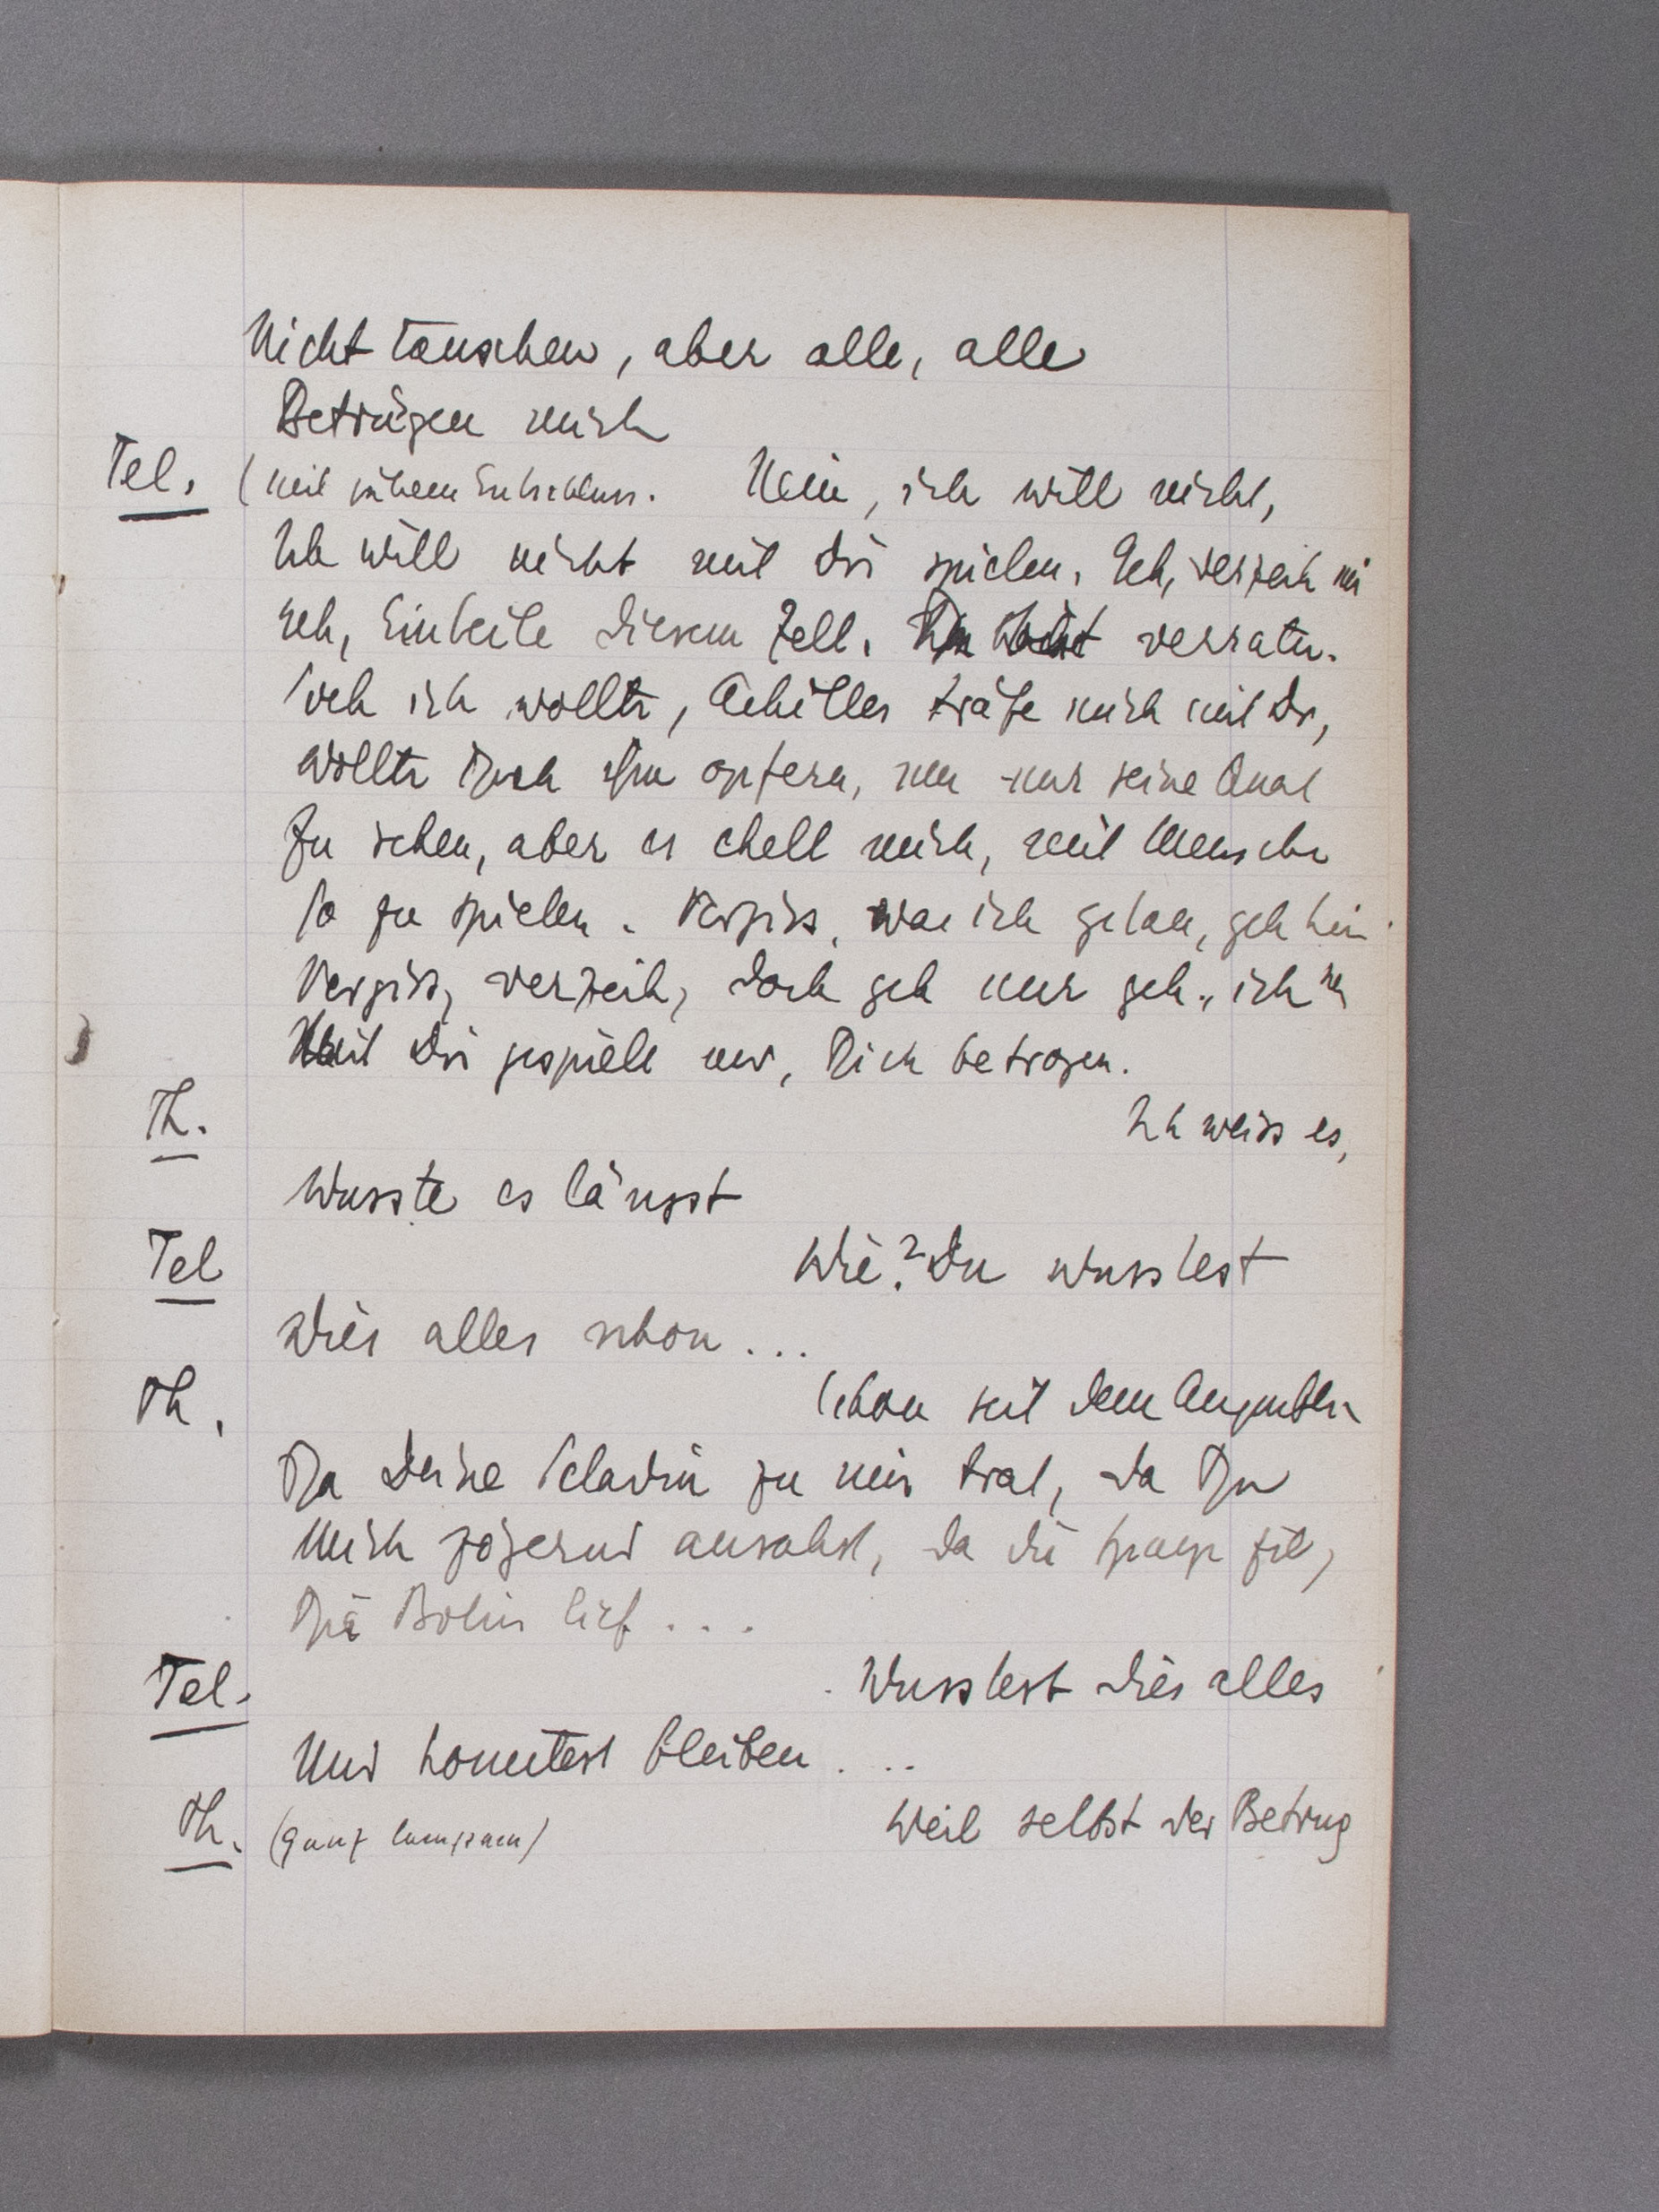 Nicht täuschen, aber alle, alle
Betrügen mich
Tel. (mit jähem Entschluss. Nein, ich will nicht,
Ich will nicht mit Dir spielen. Geh, verzeih mir
Geh, Enteile diesem Zelt. Du bist verraten.
Sieh ich wollte, Achilles träfe mich mit Dir,
Wollte Dich ihm opfern, um nur seine Qual
Zu sehen, aber es ekelt mich, mit Menschen
So zu spielen. Vergiss, was ich getan, geh hin
Vergiss, verzeih, doch geh nur geh, ich
Mit Dir gespielt nur, Dich betrogen.
Th. Ich weiss es,
Wusste es längst
Tel Wie? Du wusstest
Dies alles schon...
Th. Schon seit dem Augenblick
Da Deine Sclavin zu mir trat, da Du
Mich zögernd ansahst, da die fiel,
Die Botin lief...
Tel. Wusstest dies alles
Und konntest bleiben....
Th. (ganz langsam) Weil selbst der Betrug